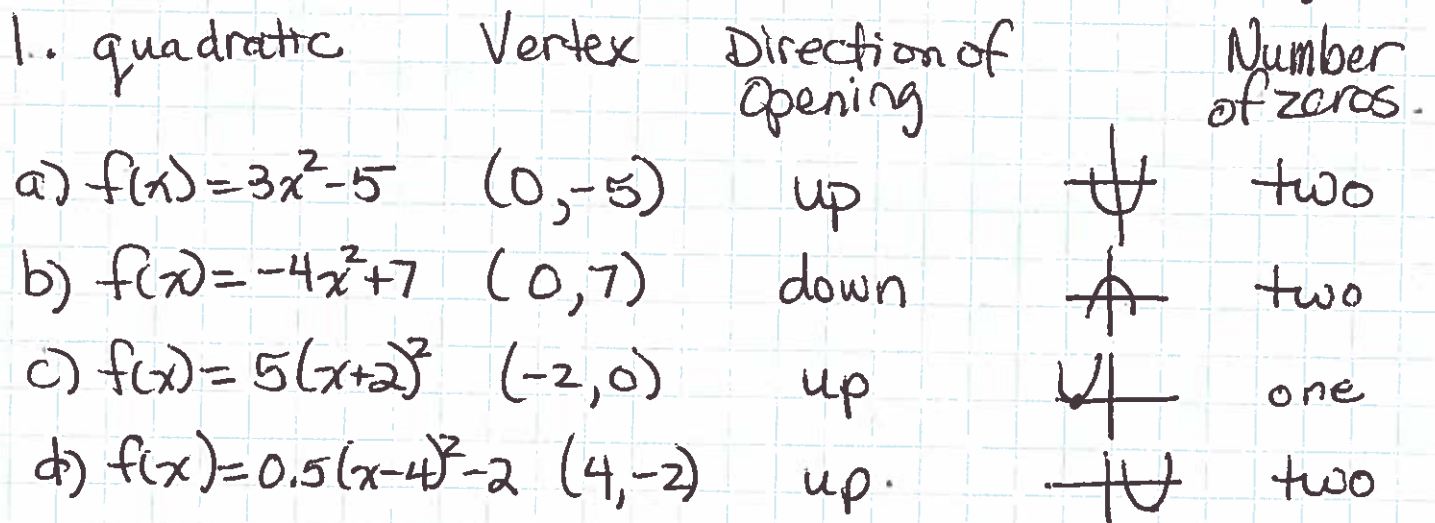 1. quadratic Vertex Direction of Opening Number of zeros.
a) f(x)=3x²-5 (0,-5) up two
b) f(x)=-4x²+7 (0,7) down two
c) f(x)=5(x+2)² (-2,0) up one
d) f(x)=0.5(x-4)²-2 (4,-2) up. two